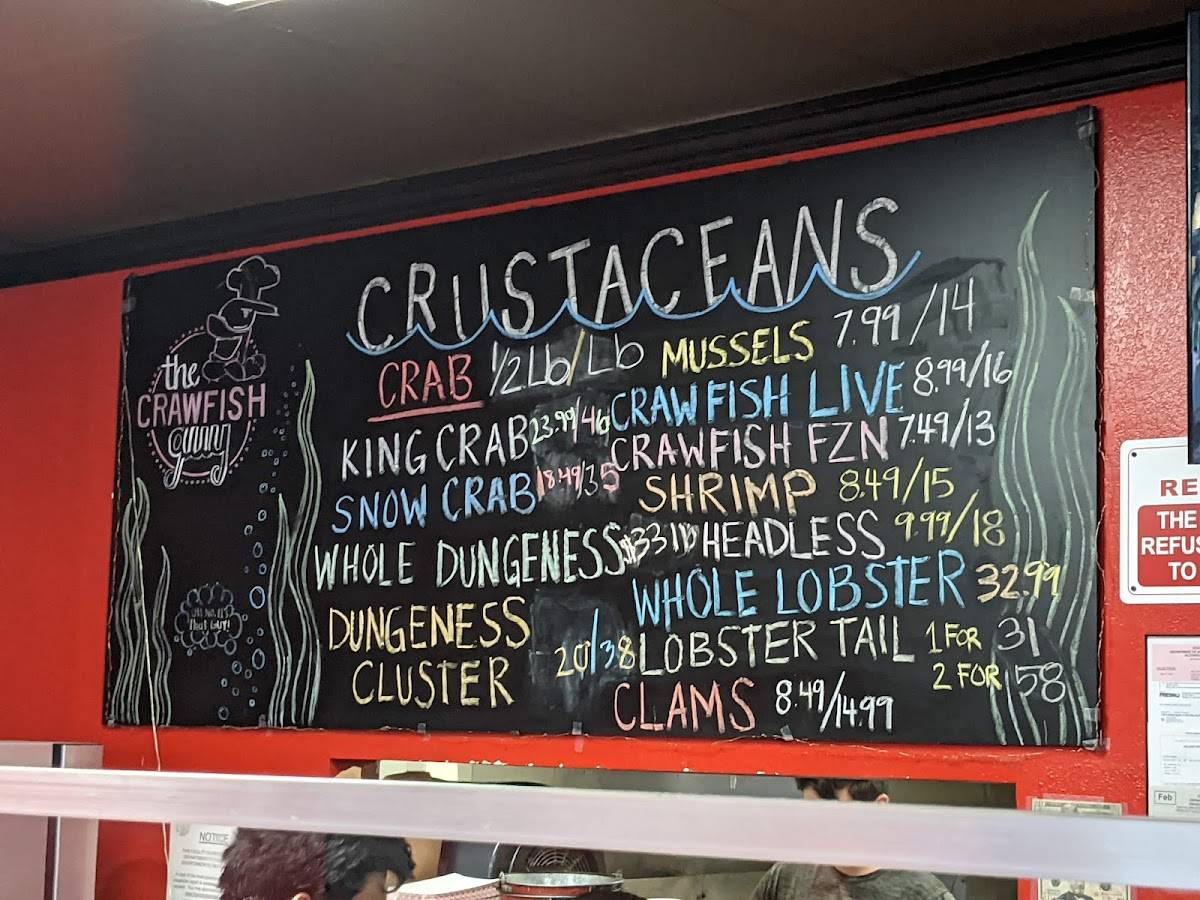 CRUSTACEANS
the
CRAWFISH
CRAB 1/2Lb/Lb
KING CRAB 23.99/46
SNOW CRAB 18.49/35
WHOLE DUNGENESS $33 lb
DUNGENESS
CLUSTER 20/38
MUSSELS 7.99/14
CRAWFISH LIVE 8.99/16
CRAWFISH FZN 7.49/13
SHRIMP 8.49/15
HEADLESS 9.99/18
WHOLE LOBSTER 32.99
LOBSTER TAIL 1 FOR 31
2 FOR 58
CLAMS 8.49/14.99
that Guy!
RE
THE
REFUS
TO
NOTICE
Feb